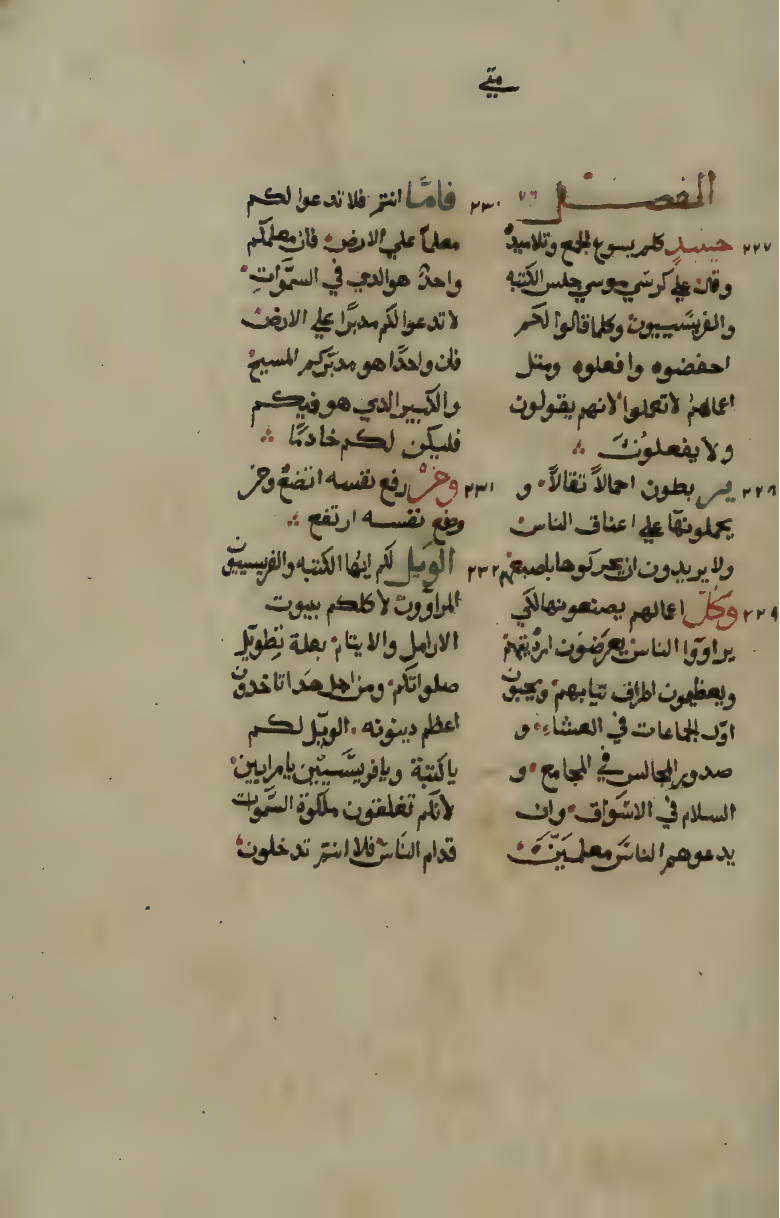 متي
الفصل ٧٦
٢٢٧ حينيدٍ كلم يسوع الجمع وتلاميدهُ
وقال علي كرسي موسي جلس الكتبه
والفريسيون وكلما قالوا لكم
احفضوه وافعلوه ومتل
اعمالهم لا تعملوا لانهم يقولون
ولا يفعلون
٢٢٨ يربطون احمالاً تقالاً و
يحملونها علي اعناق الناس
ولا يريدون ان يحركوها باصبعهم
٢٢٩ وكل اعمالهم يصنعونها لكي
يراووا الناس يعرضون ارديتهم
ويعظمون اطراف تيابهم ويحبون
اول الجماعات في العشاء و
صدور المجالس في المجامع و
السلام في الاسواق وان
يدعوهم الناس معلمين
٢٣٠ فامّا انتم فلا تدعوا لكم
معلماً علي الارض فان معلمكم
واحدٌ هو الدي في السموات
لا تدعوا لكم مدبرًا علي الارض
فان واحدًا هو مدبركم المسيح
والكبير الدي هو فيكم
فليكن لكم خادمًا
٢٣١ ومن رفع نفسه اتضع ومن
وضع نفسه ارتفع
٢٣٢ الويل لكم ايها الكتبه والفريسيين
المراوون لاكلكم بيوت
الارامل والايتام بعلة تطويل
صلواتكم ومن اجل هدا تاخدون
اعظم دينونه الويل لكم
يا كتبة ويا فريسيين يا مرايين
لانكم تغلقون ملكوة السموات
قدام الناس فلا انتم تدخلون